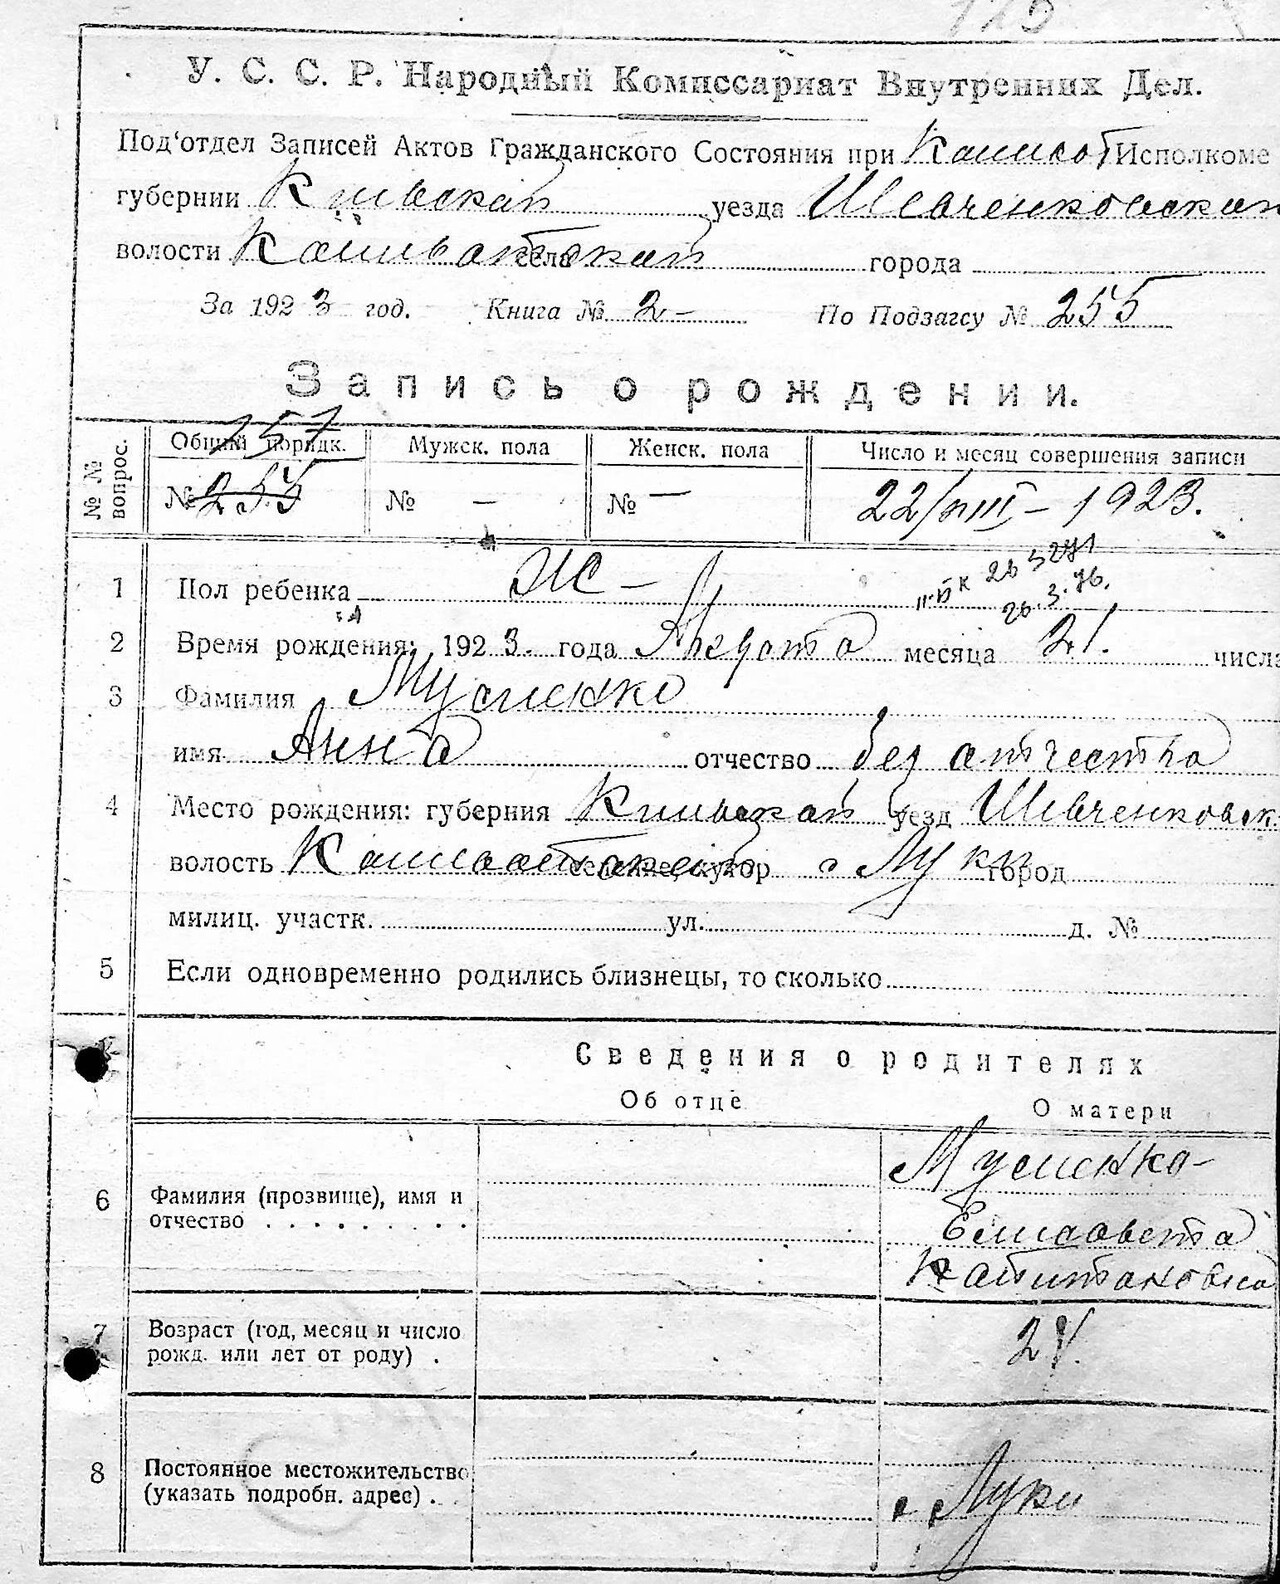 125
У. С. С. Р. Народный Комиссариат Внутренних Дел.
Под'отдел Записей Актов Гражданского Состояния при Исполкоме
губернии Киевской уезда Шевченковская
волости села города
За 1923 год. Книга № 2- По Подзагсу № 255
Запись о рождении.
№ № вопрос. Общий порядк. Мужск. пола Женск. пола Число и месяц совершения записи
257
№ 255 № — № — 22/VIII – 1923.
1 Пол ребенка Ж –
2 Время рождения: 1923. года Августа месяца 21. числа
26.3.76.
3 Фамилия Мусиенко
имя Анна отчество без отчества
4 Место рождения: губерния Киевской уезд Шевченковск
волость селение, хутор с Луки город
милиц. участк. ул. д. №
5 Если одновременно родились близнецы, то сколько
Сведения о родителях
Об отце О матери
6 Фамилия (прозвище), имя и отчество Мусиенко-
Елисавета
Капитановна
7 Возраст (год, месяц и число рожд. или лет от роду)
8 Постоянное местожительство (указать подробн. адрес) с. Луки